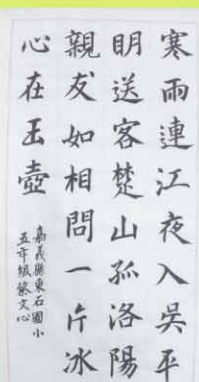 寒雨連江夜入吳平
明送客楚山孤洛陽
親友如相問一片冰
心在玉壺
嘉義縣東石國小
五年級蔡文心